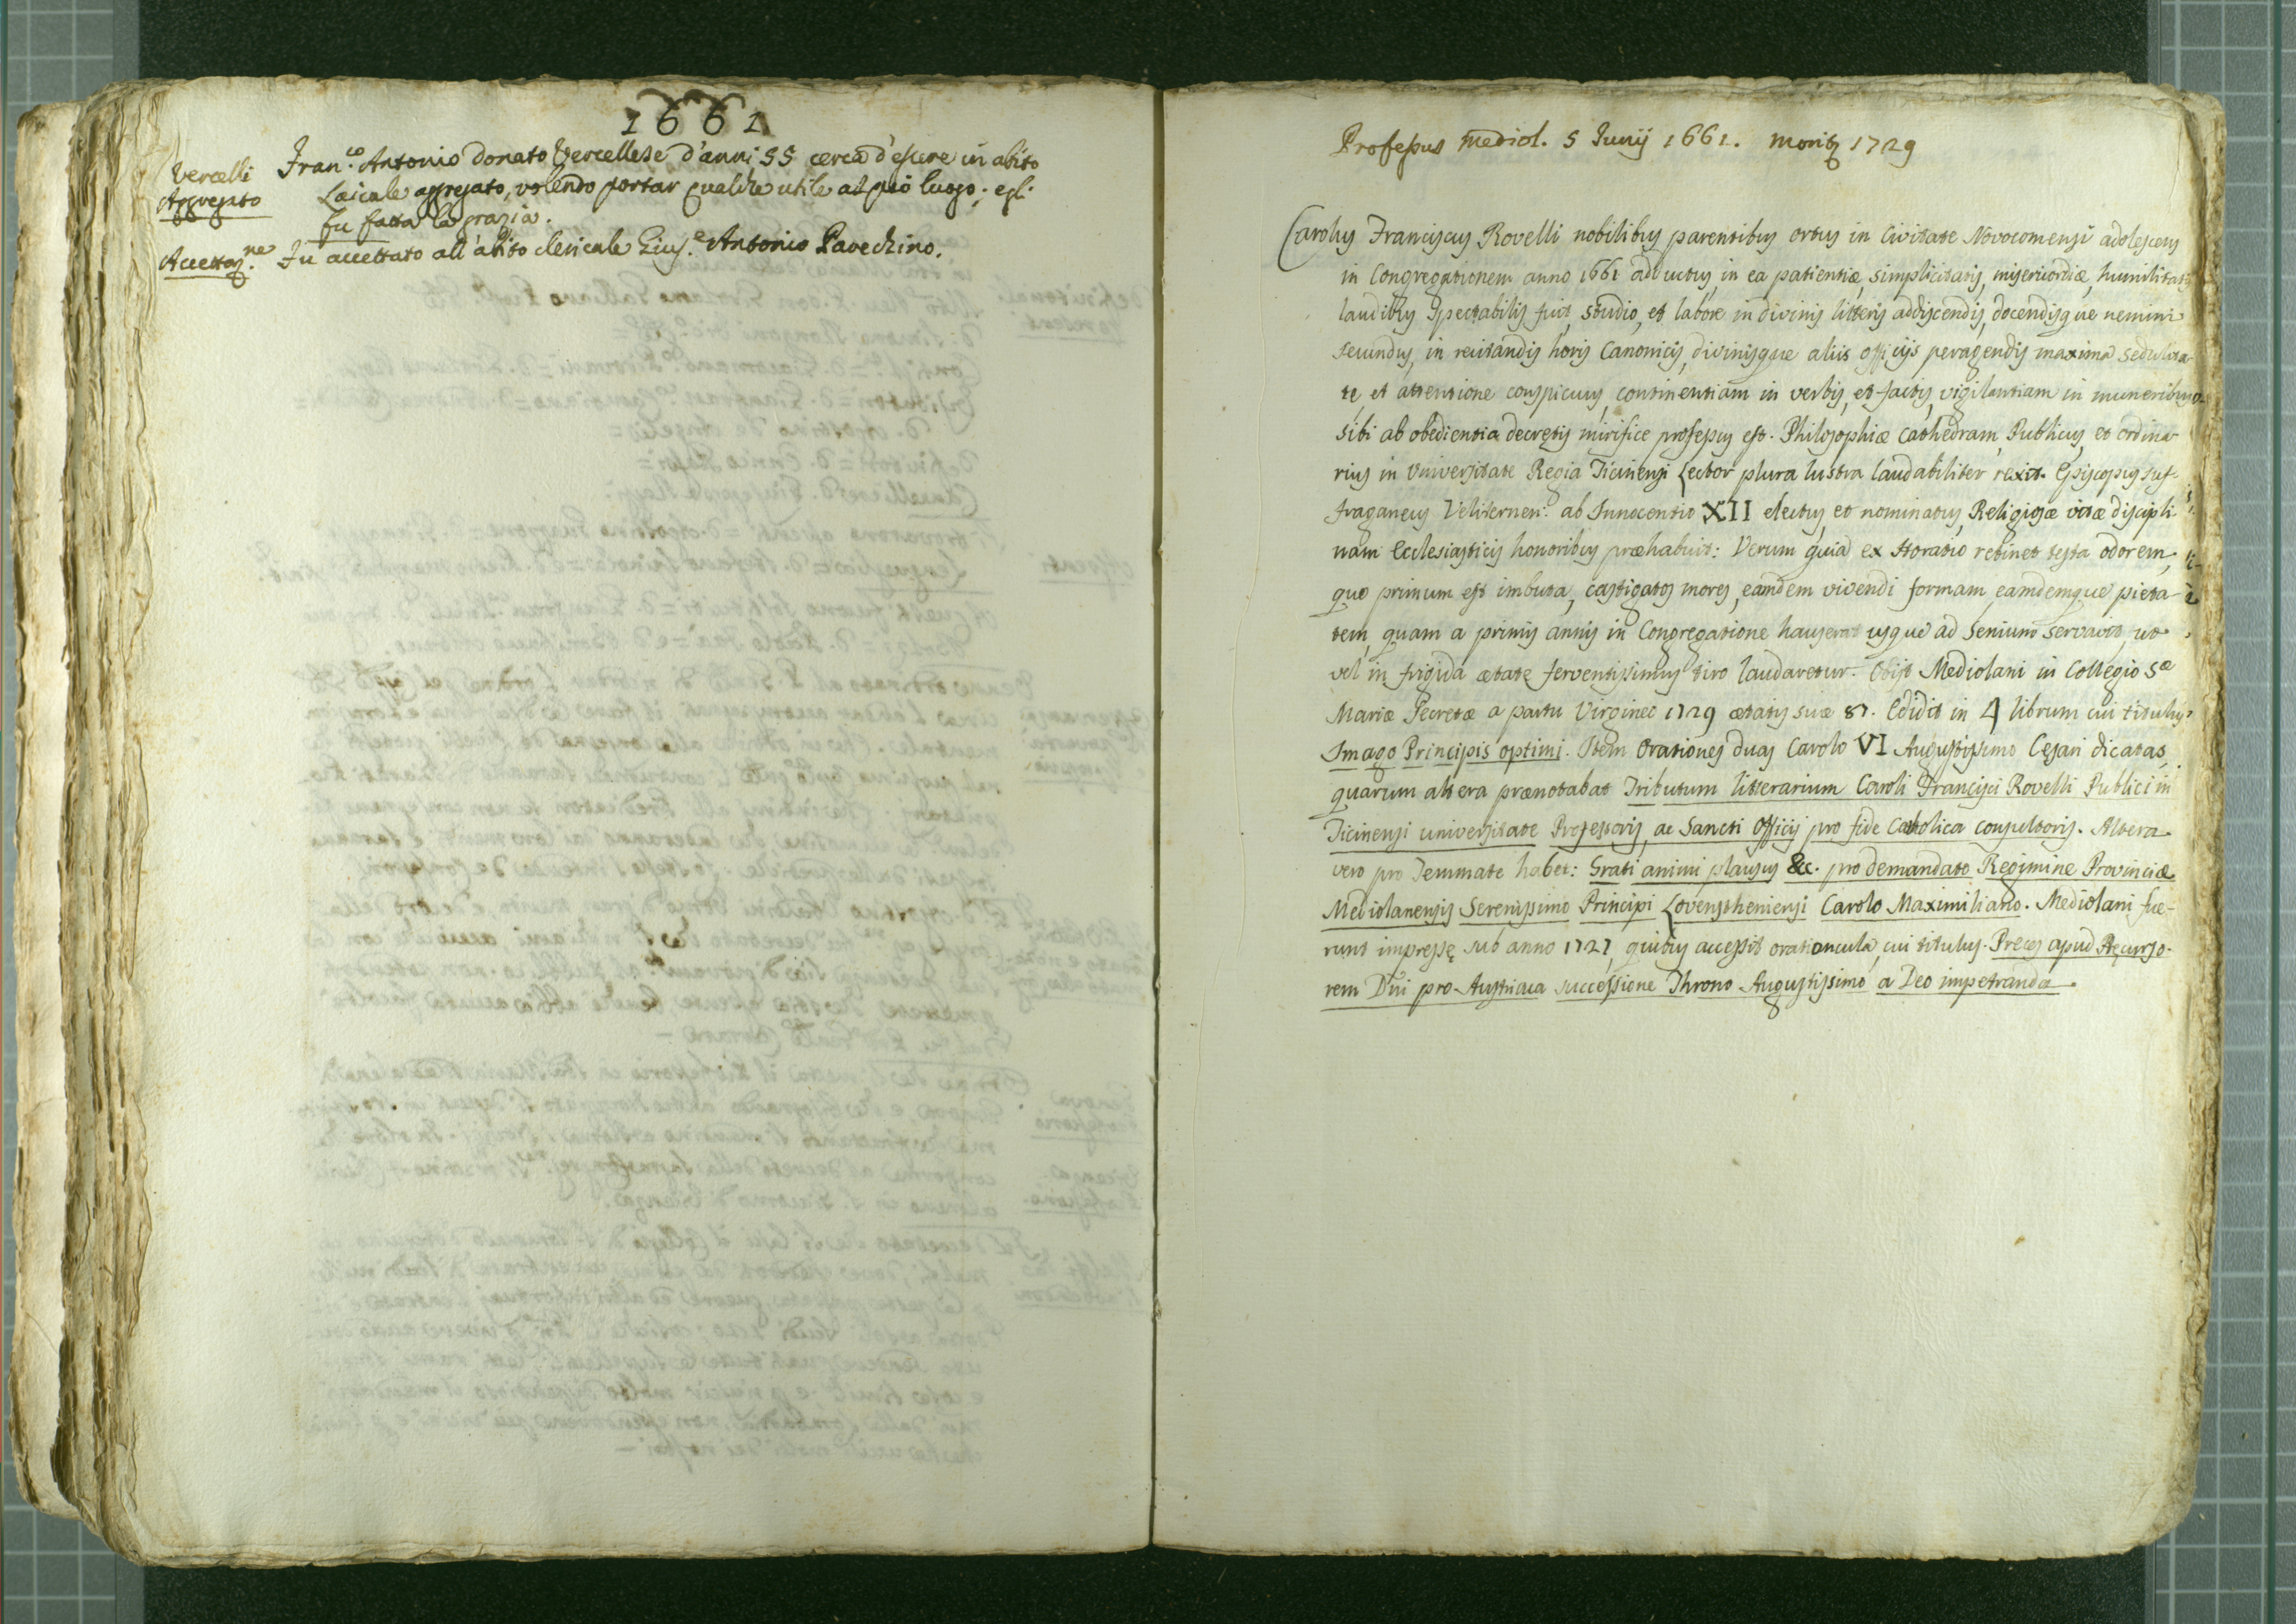 1661
Vercelli
Aggregato
Fran.co Antonio donato Vercellese d'anni 55 cerca d'essere in abito
Laicale aggregato, volendo portar qualche utile al pio luogo; egli
fu fatta la grazia.
Accettaz.ne
Fu accettato all'abito clericale Gius.e Antonio Pavechino.
Professus Mediol. 5 Junij 1661. morit 1729
Carolus Franciscus Rovelli nobilibus parentibus ortus in Civitate Novocomensi adolescens
in Congregationem anno 1661 adductus, in ea patientiæ, simplicitatis, misericordiæ, humilitatis
laudibus Spectabilis fuit, studio, et labore in divinis litteris addiscendis, docendisque nemini
secundus, in recitandis horis Canonicis, divinisque aliis officijs peragendis maxima sedulita-
te, et attentione conspicuus, continentiam in verbis, et factis, vigilantiam in muneribus
sibi ab obedientia decretis mirifice professus est. Philosophiæ Cathedram, Publicus, et ordina-
rius in Universitate Regia Ticinensi Lector plura lustra laudabiliter rexit. Episcopus suf-
fraganeus Veliternen: ab Innocentio XII electus, et nominatus, Religiosæ vitæ discipli-
nam Ecclesiasticis honoribus præhabuit: Verum quia ex Horatio retinet testa odorem,
quo primum est imbuta, castigatos mores, eamdem vivendi formam, eamdemque pieta-
tem, quam a primis annis in Congregatione hauserat usque ad Senium servavit, ut
vel in frigida ætate ferventissimus tiro laudaretur. Obijt Mediolani in Collegio Sæ
Mariæ Secretæ a partu Virgineo 1729 ætatis suæ 87. Edidit in 4 librum cui titulus
Imago Principis optimi. Item Orationes duas Carolo VI Augustissimo Cesari dicatas,
quarum altera prænotabat Tributum litterarium Caroli Francisci Rovelli Publici in
Ticinensi universitate Professoris, ac Sancti Officij pro fide Catholica consultoris. Altera
vero pro Lemmate habet: Grati animi plausus &c. pro demandato Regimine Provinciæ
Mediolanensis Serenissimo Principi Lovenstheniensi Carolo Maximiliano. Mediolani fue-
runt impressę sub anno 1727, quibus accessit oratiuncula, cui titulus. Preces apud Pręcurso-
rem Dni pro Austriaca successione Throno Augustissimo a Deo impetranda.